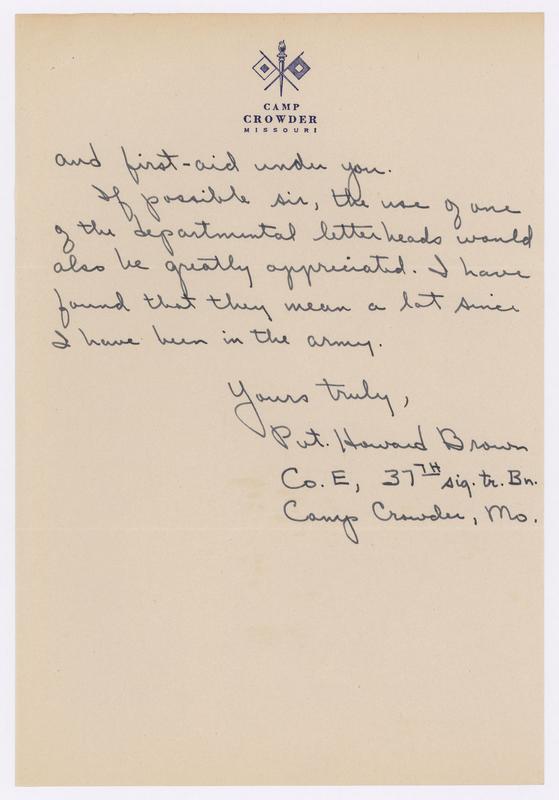 CAMP
CROWDER
MISSOURI
and first-aid under you.
If possible sir, the use of one
of the departmental letterheads would
also be greatly appreciated. I have
found that they mean a lot since
I have been in the army.
Yours truly,
Pvt. Howard Brown
Co. E, 37TH sig. tr. Bn.
Camp Crowder, Mo.